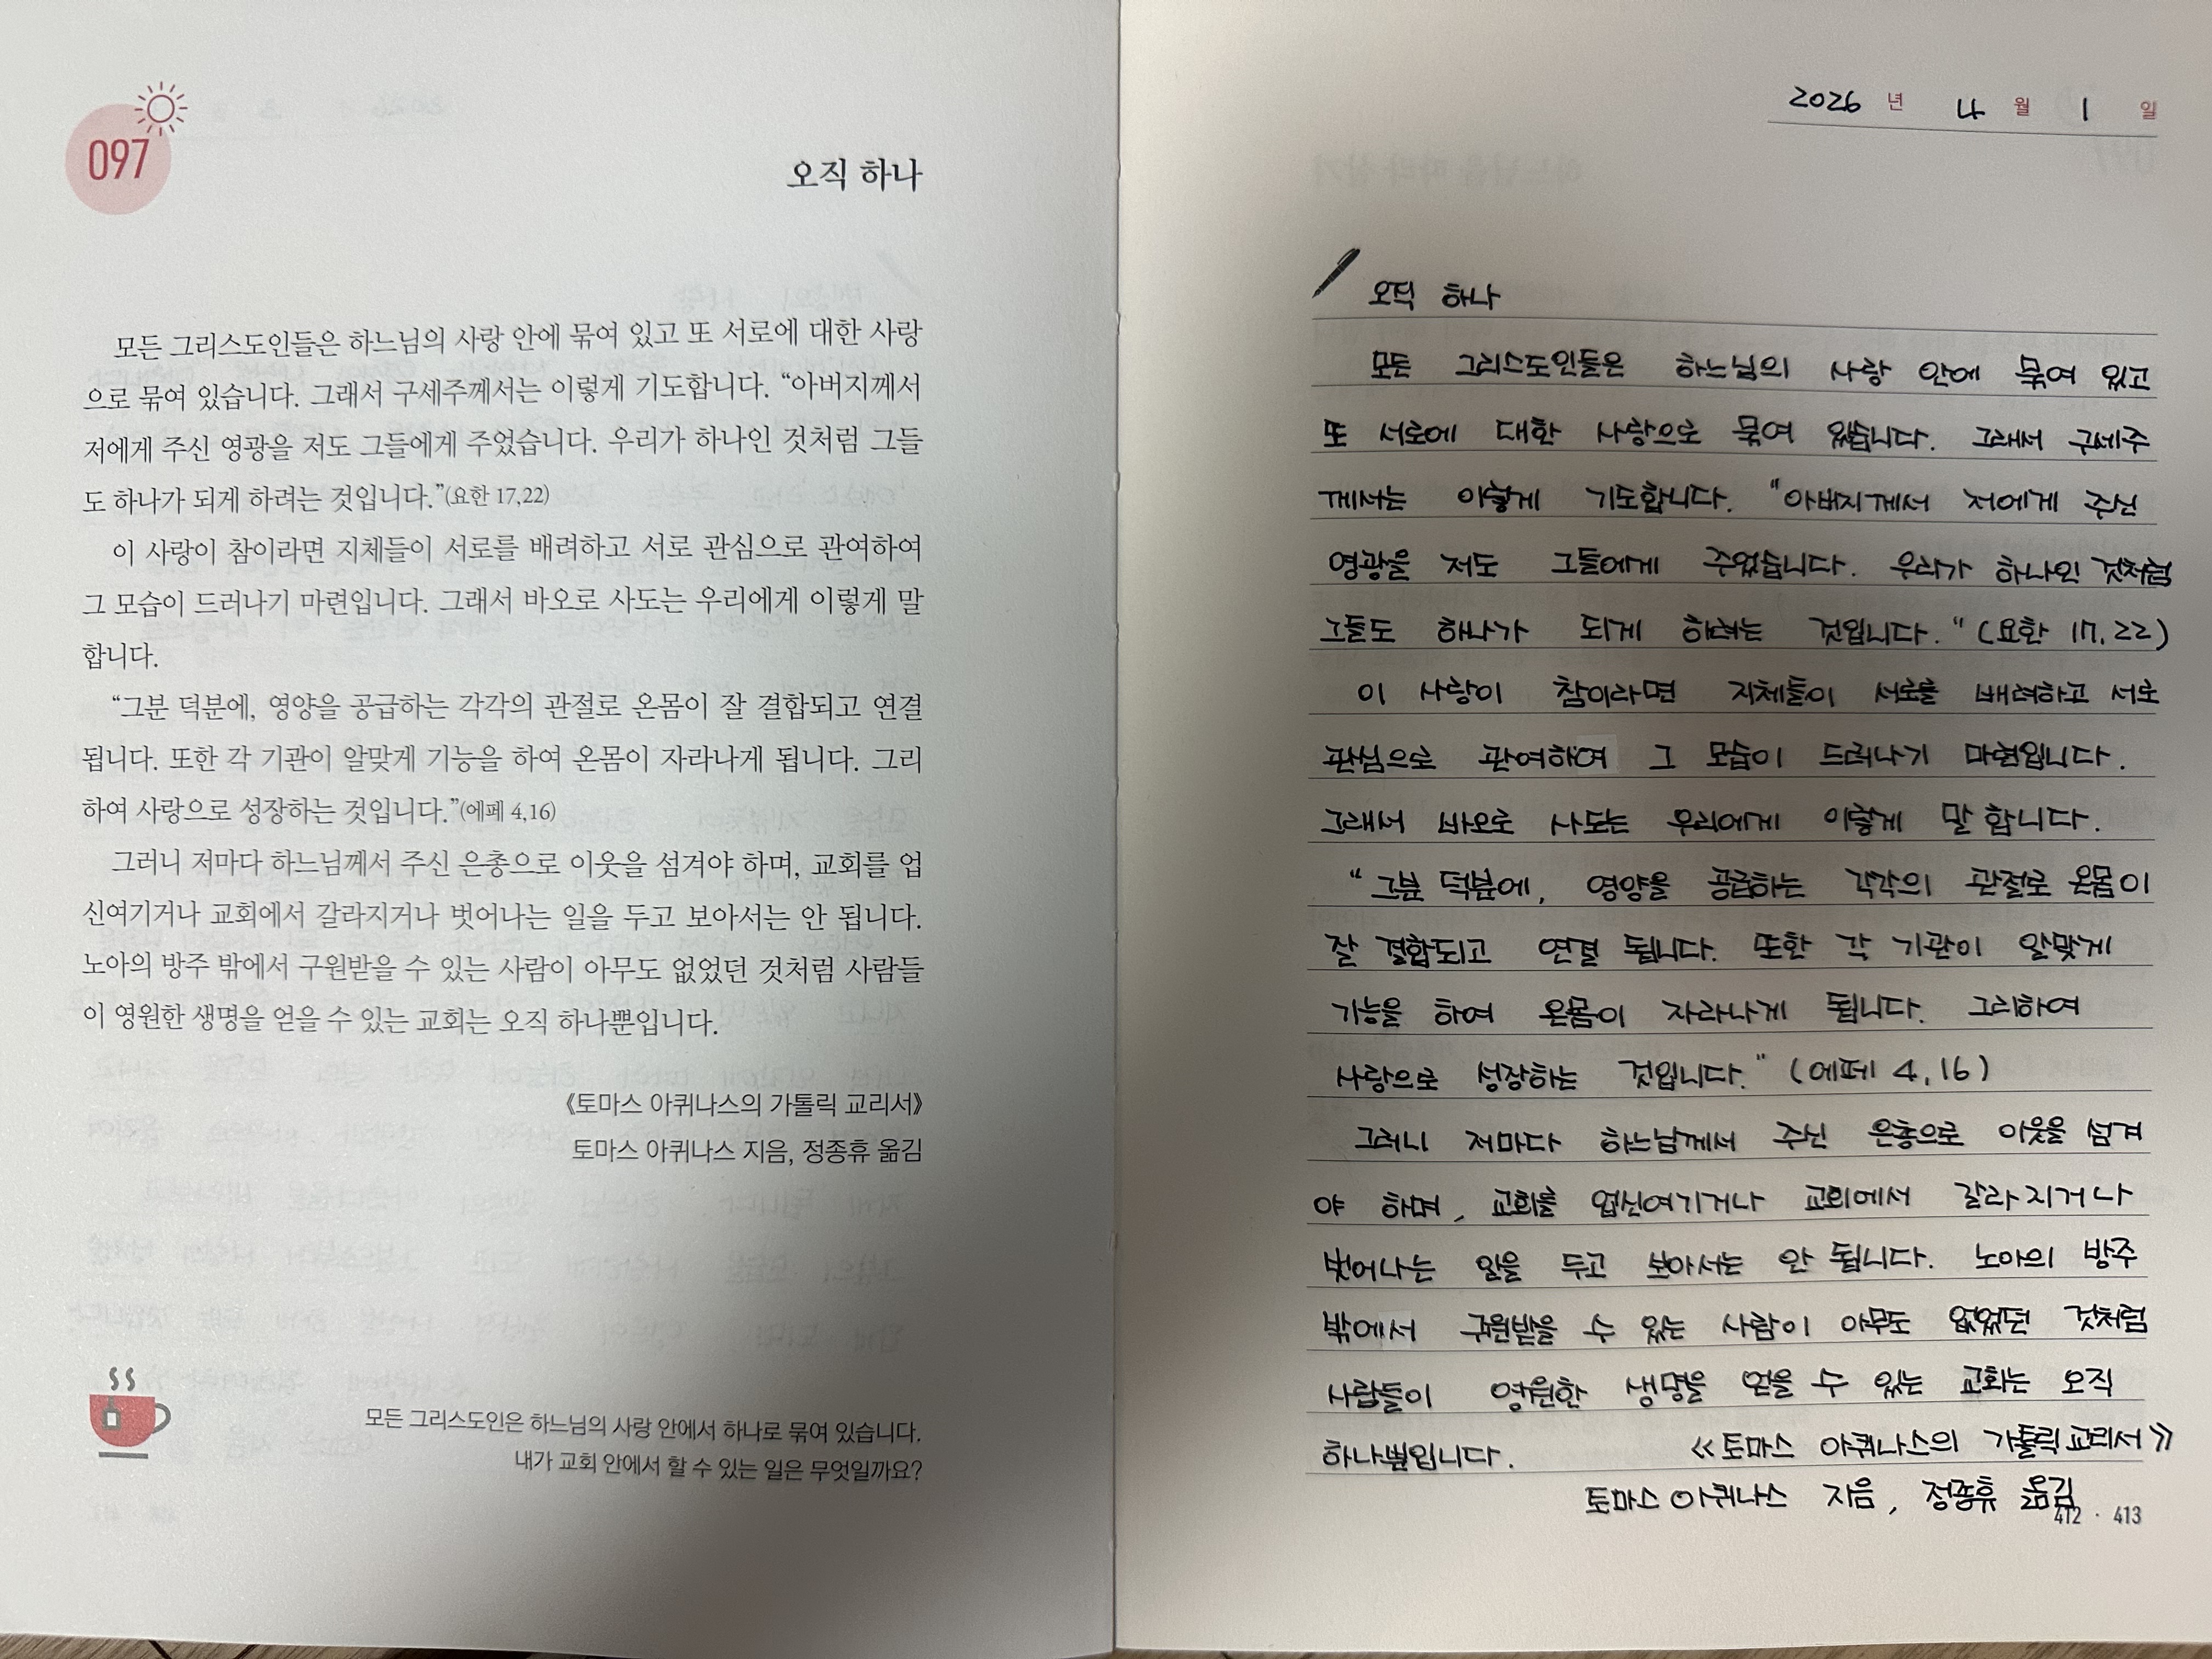 097
오직 하나
모든 그리스도인들은 하느님의 사랑 안에 묶여 있고 또 서로에 대한 사랑
으로 묶여 있습니다. 그래서 구세주께서는 이렇게 기도합니다. “아버지께서
저에게 주신 영광을 저도 그들에게 주었습니다. 우리가 하나인 것처럼 그들
도 하나가 되게 하려는 것입니다.”(요한 17,22)
이 사랑이 참이라면 지체들이 서로를 배려하고 서로 관심으로 관여하여
그 모습이 드러나기 마련입니다. 그래서 바오로 사도는 우리에게 이렇게 말
합니다.
“그분 덕분에, 영양을 공급하는 각각의 관절로 온몸이 잘 결합되고 연결
됩니다. 또한 각 기관이 알맞게 기능을 하여 온몸이 자라나게 됩니다. 그리
하여 사랑으로 성장하는 것입니다.”(에페 4,16)
그러니 저마다 하느님께서 주신 은총으로 이웃을 섬겨야 하며, 교회를 업
신여기거나 교회에서 갈라지거나 벗어나는 일을 두고 보아서는 안 됩니다.
노아의 방주 밖에서 구원받을 수 있는 사람이 아무도 없었던 것처럼 사람들
이 영원한 생명을 얻을 수 있는 교회는 오직 하나뿐입니다.
《토마스 아퀴나스의 가톨릭 교리서》
토마스 아퀴나스 지음, 정종휴 옮김
모든 그리스도인은 하느님의 사랑 안에서 하나로 묶여 있습니다.
내가 교회 안에서 할 수 있는 일은 무엇일까요?
2026 년 4 월 1 일
오직 하나
모든 그리스도인들은 하느님의 사랑 안에 묶여 있고
또 서로에 대한 사랑으로 묶여 있습니다. 그래서 구세주
께서는 이렇게 기도합니다. "아버지께서 저에게 주신
영광을 저도 그들에게 주었습니다. 우리가 하나인 것처럼
그들도 하나가 되게 하려는 것입니다." (요한 17, 22)
이 사랑이 참이라면 지체들이 서로를 배려하고 서로
관심으로 관여하여 그 모습이 드러나기 마련입니다.
그래서 바오로 사도는 우리에게 이렇게 말 합니다.
"그분 덕분에, 영양을 공급하는 각각의 관절로 온몸이
잘 결합되고 연결 됩니다. 또한 각 기관이 알맞게
기능을 하여 온몸이 자라나게 됩니다. 그리하여
사랑으로 성장하는 것입니다." (에페 4, 16)
그러니 저마다 하느님께서 주신 은총으로 이웃을 섬겨
야 하며, 교회를 업신여기거나 교회에서 갈라지거나
벗어나는 일을 두고 보아서는 안 됩니다. 노아의 방주
밖에서 구원받을 수 있는 사람이 아무도 없었던 것처럼
사람들이 영원한 생명을 얻을 수 있는 교회는 오직
하나뿐입니다. 《토마스 아퀴나스의 가톨릭 교리서》
토마스 아퀴나스 지음, 정종휴 옮김
412 · 413